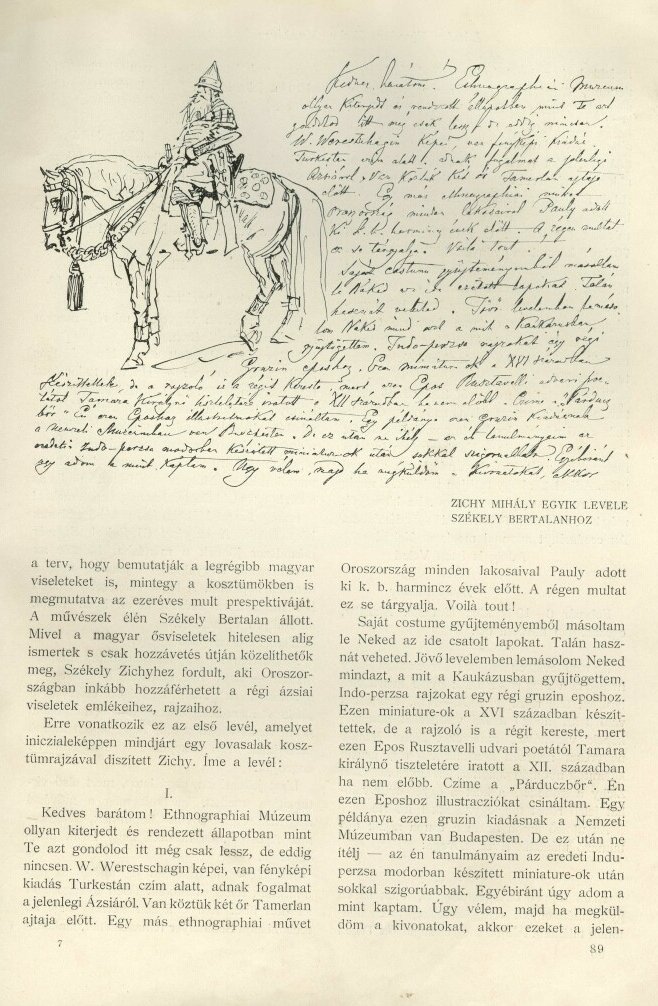 Kedves barátom! Ethnographiai Muzeum
ollyan kiterjedt és rendezett állapotban mint Te azt
gondolod itt még csak lessz, de eddig nincsen.
W. Werestschagin képei, van fényképi kiadás
Turkestán czim alatt, adnak fogalmat a jelenlegi
Ázsiáról. Van köztük két őr Tamerlan ajtaja
előtt. Egy más ethnographiai művet
Oroszország minden lakosaival Pauly adott
ki k. b. harmincz évek előtt. A régen multat
ez se tárgyalja. Voilà tout!
Saját costume gyűjteményemből másoltam
le Neked az ide csatolt lapokat. Talán
hasznát veheted. Jövő levelemben lemáso-
lom Neked mind azt a mit a Kaukázusban
gyűjtögettem. Indo-perzsa rajzokat egy régi
gruzin eposhoz. Ezen miniature-ok a XVI században
készittettek, de a rajzoló is a régit kereste, mert ezen Epos Rusztavelli udvari poe-
tától Tamara királynő tiszteletére iratott a XII században ha nem előbb. Czime a „Párducz
bőr“ Én ezen Eposhoz illustratiokat csináltam. Egy példánya ezen gruzin kiadásnak
a Nemzeti Múzeumban van Budapesten. De ez után ne itélj – az én tanulmányaim az
eredeti Indo-perzsa modorban készitett miniature-ok után sokkal szigorúabbak. Egyébiránt
úgy adom a mint kaptam. Úgy vélem, majd ha megküldöm a kivonatokat, akkor
ZICHY MIHÁLY EGYIK LEVELE
SZÉKELY BERTALANHOZ
a terv, hogy bemutatják a legrégibb magyar
viseleteket is, mintegy a kosztümökben is
megmutatva az ezeréves mult prespektiváját.
A művészek élén Székely Bertalan állott.
Mivel a magyar ősviseletek hitelesen alig
ismertek s csak hozzávetés útján közelíthetők
meg, Székely Zichyhez fordult, aki Oroszor-
szágban inkább hozzáférhetett a régi ázsiai
viseletek emlékeihez, rajzaihoz.
Erre vonatkozik ez az első levél, amelyet
iniczialeképpen mindjárt egy lovasalak kosz-
tümrajzával díszített Zichy. Íme a levél:
I.
Kedves barátom! Ethnographiai Múzeum
ollyan kiterjedt és rendezett állapotban mint
Te azt gondolod itt még csak lessz, de eddig
nincsen. W. Werestschagin képei, van fényképi
kiadás Turkestán czím alatt, adnak fogalmat
a jelenlegi Ázsiáról. Van köztük két őr Tamerlan
ajtaja előtt. Egy más ethnographiai művet
7
Oroszország minden lakosaival Pauly adott
ki k. b. harmincz évek előtt. A régen multat
ez se tárgyalja. Voilà tout!
Saját costume gyűjteményemből másoltam
le Neked az ide csatolt lapokat. Talán hasz-
nát veheted. Jövő levelemben lemásolom Neked
mindazt, a mit a Kaukázusban gyűjtögettem,
Indo-perzsa rajzokat egy régi gruzin eposhoz.
Ezen miniature-ok a XVI században készít-
tettek, de a rajzoló is a régit kereste, mert
ezen Epos Rusztavelli udvari poetától Tamara
királynő tiszteletére iratott a XII. században
ha nem előbb. Czíme a „Párduczbőr“. Én
ezen Eposhoz illustracziókat csináltam. Egy
példánya ezen gruzin kiadásnak a Nemzeti
Múzeumban van Budapesten. De ez után ne
itélj — az én tanulmányaim az eredeti Indu-
perzsa modorban készített miniature-ok után
sokkal szigorúabbak. Egyébiránt úgy adom a
mint kaptam. Úgy vélem, majd ha megkül-
döm a kivonatokat, akkor ezeket a jelen-
89